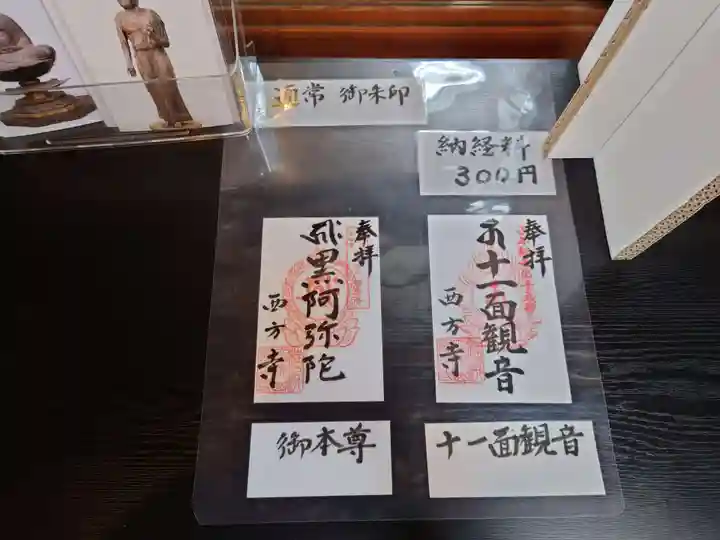 通常 御朱印
納経料
300円
奉拝
黒阿弥陀
西方寺
奉拝
十一面観音
西方寺
御本尊
十一面観音